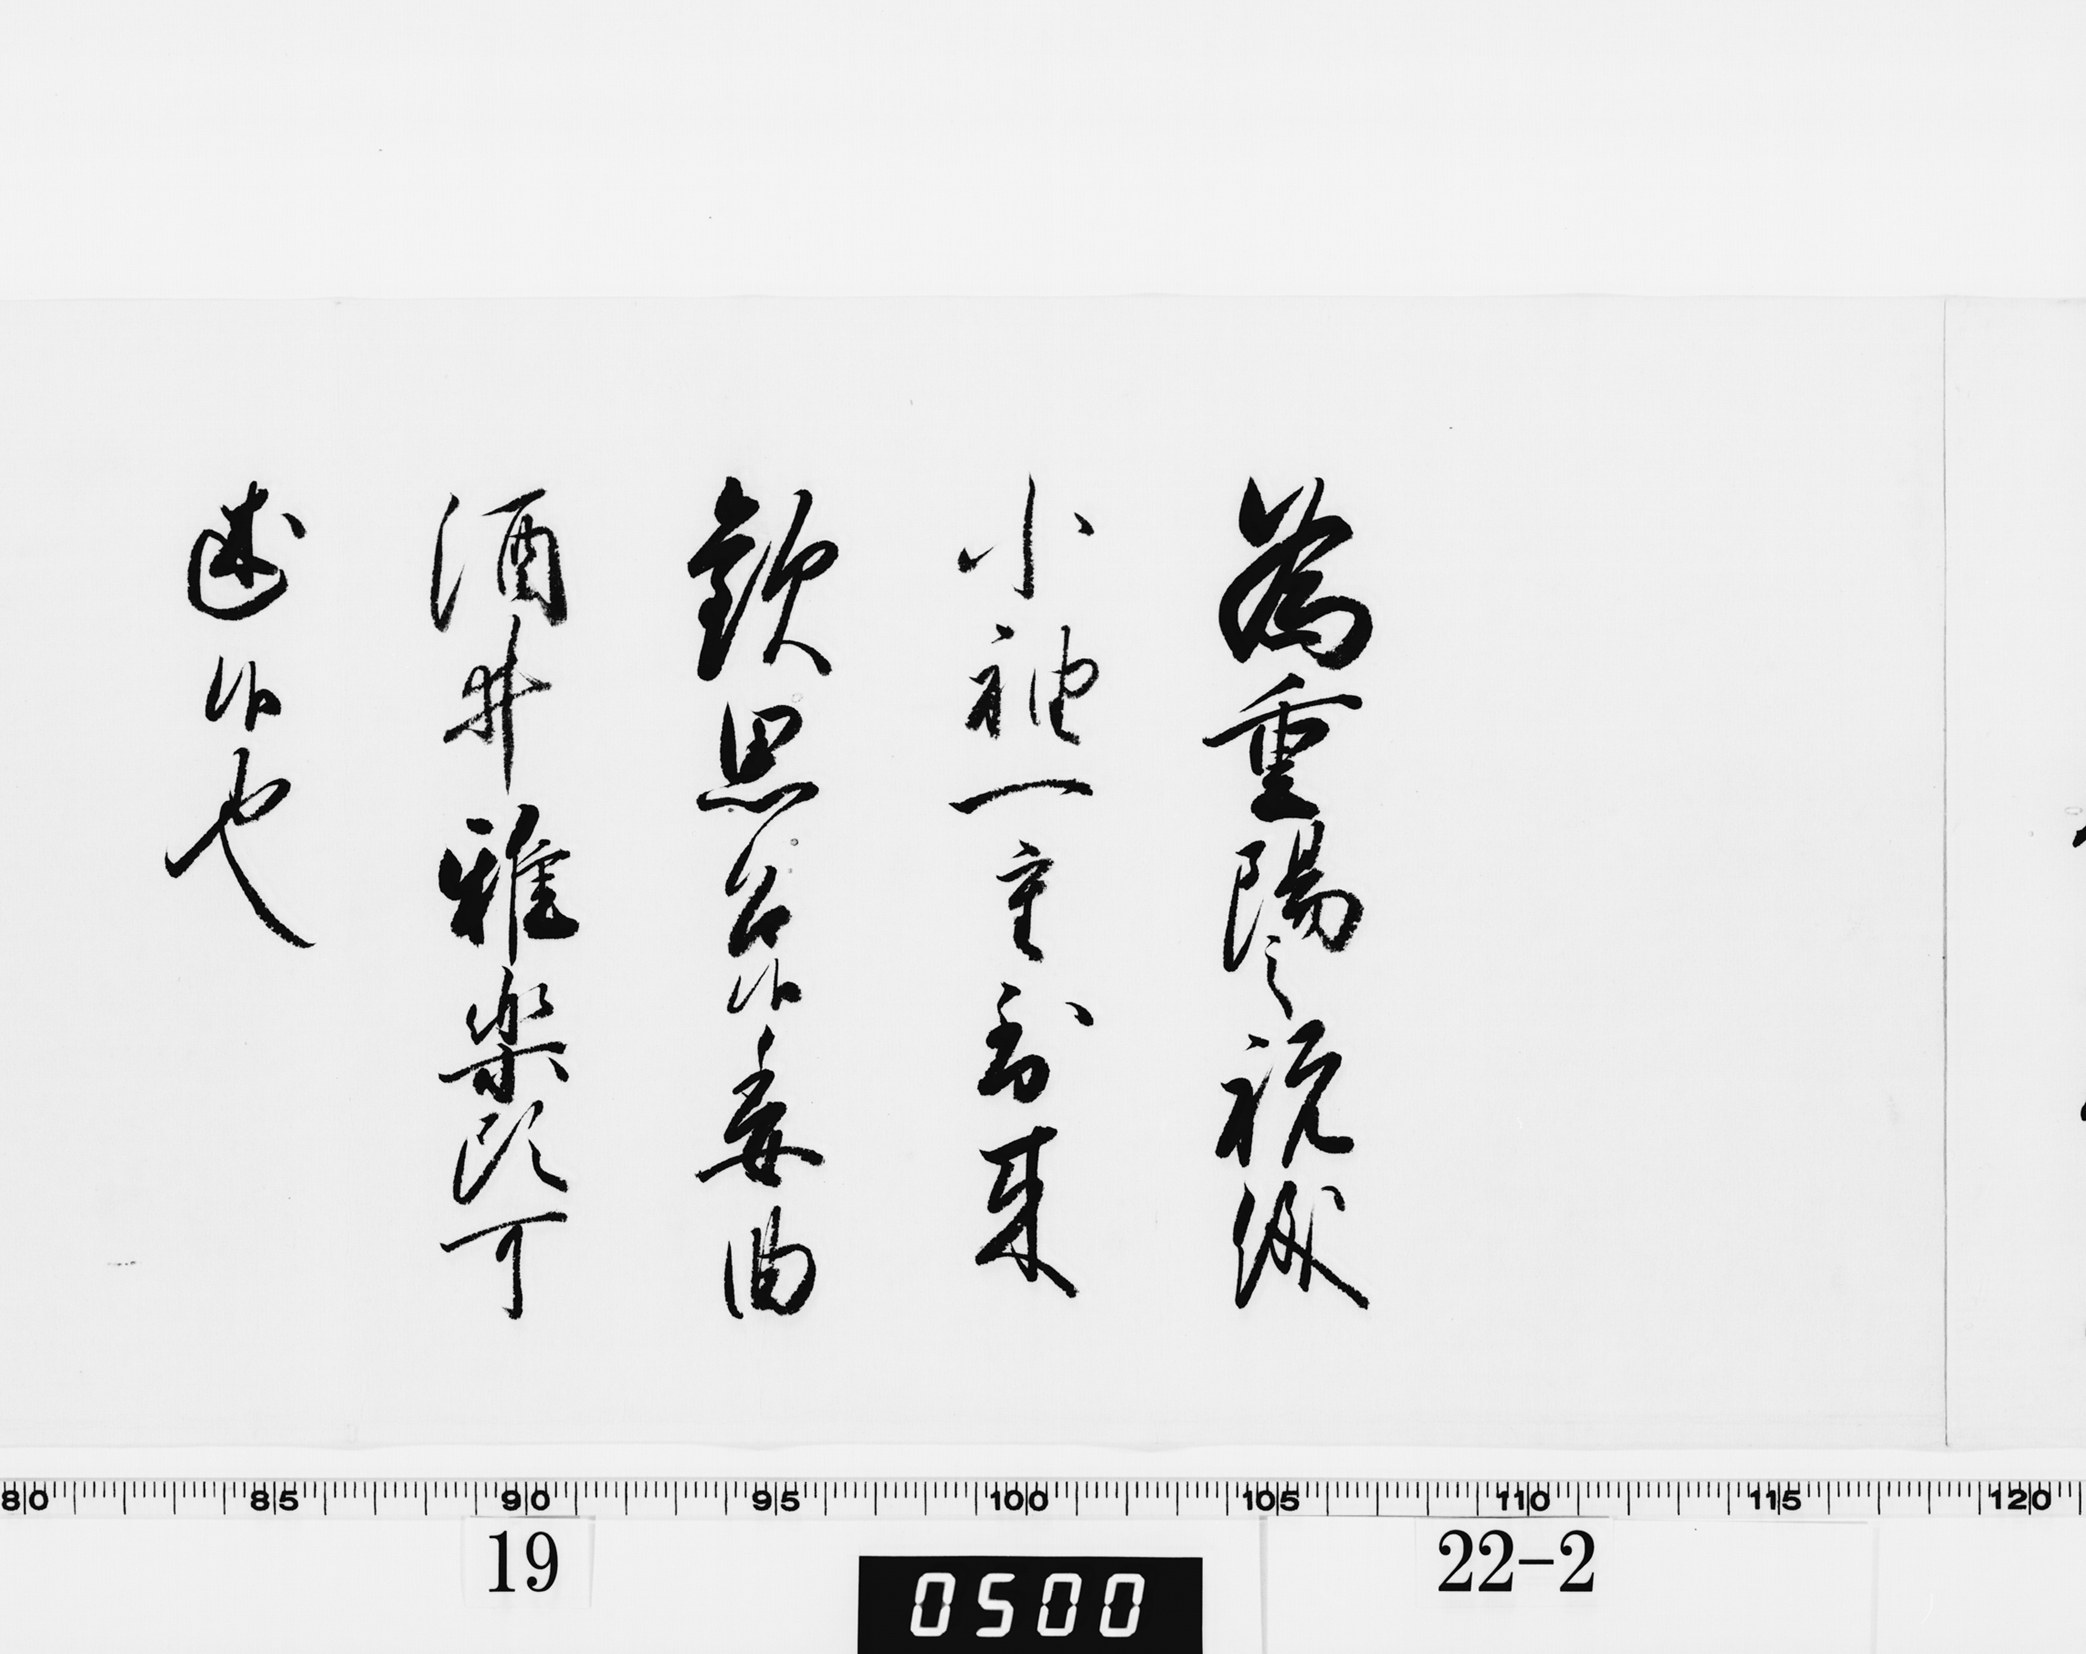 為重陽之祝儀
小袖一重到来
歓思召候委曲
酒井雅楽頭可
述候也
80 85 90 95 100 105 110 115 120
19
0500
22-2